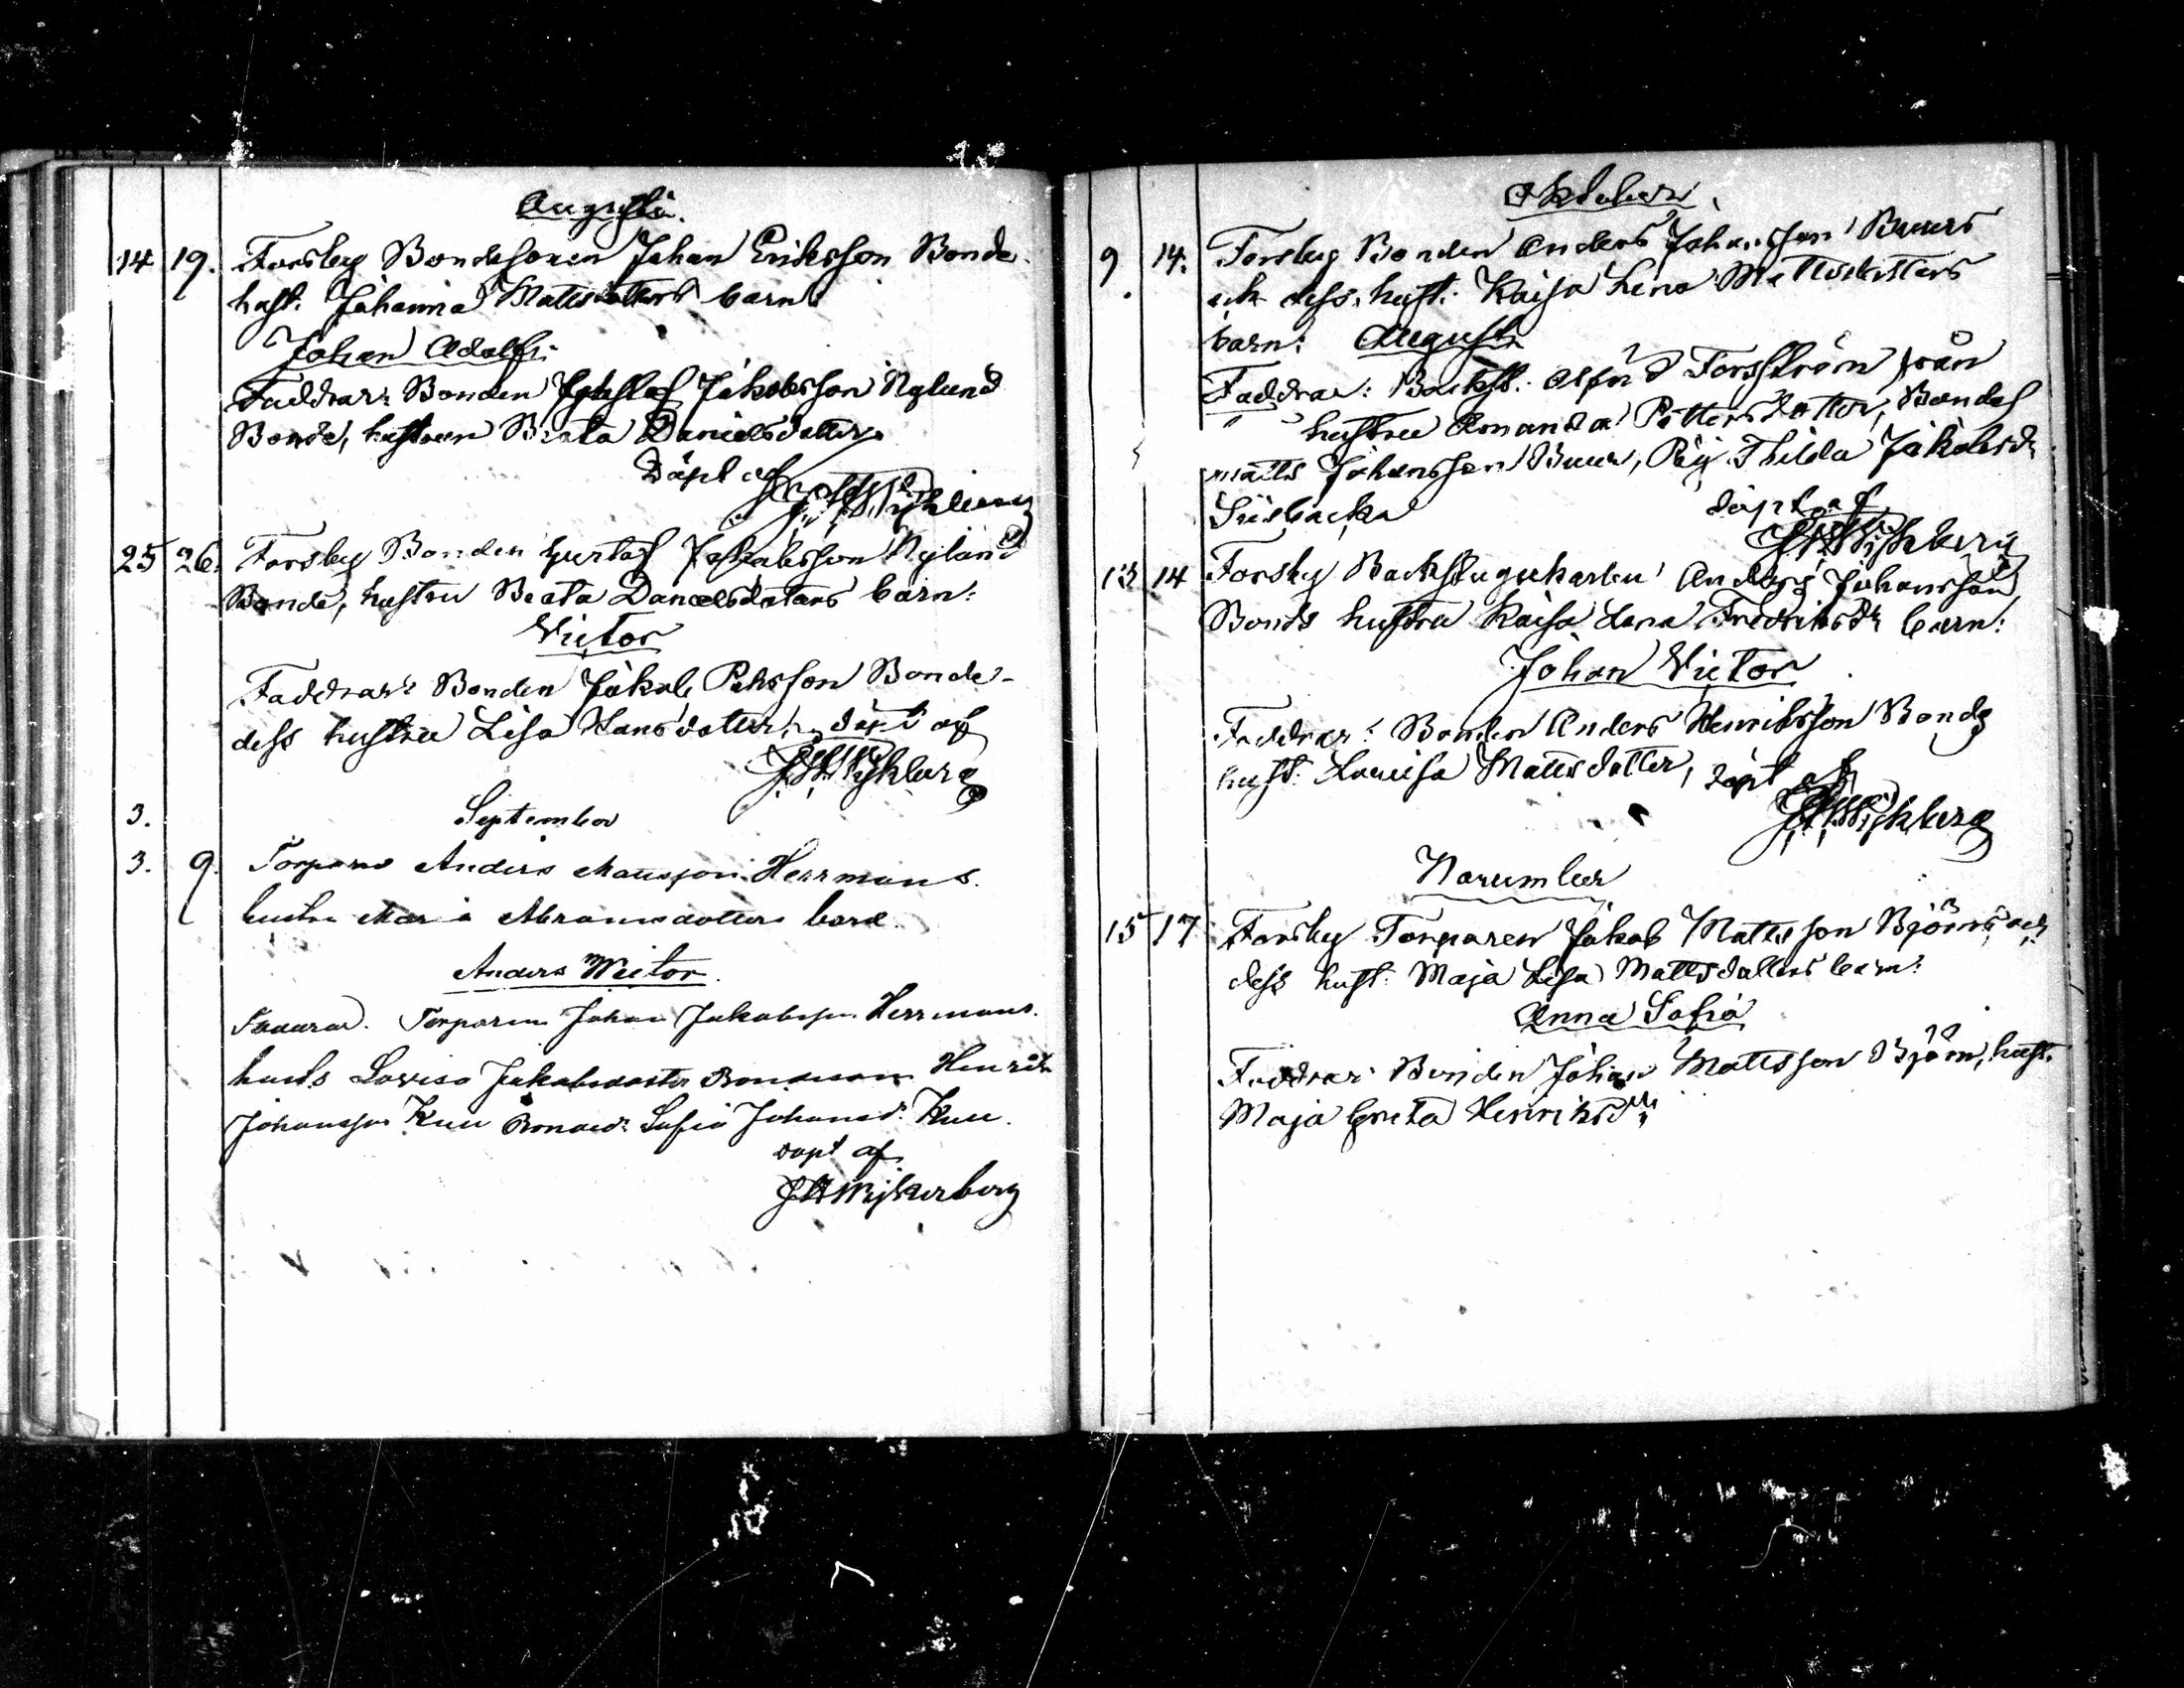 Augusti.
14 19. Forsby Bondesonen Johan Eriksson Bonde
hust. Johanna Mattsdotters barn:
Johan Adolf:
Faddrar: Bonden Gustaf Jakobsson Nylund
Bonde, hustrun Beata Danielsdotter
Döpt af
25 26. Forsby Bonden Gustaf Jakobsson Nylund
Bonde, hustru Beata Danielsdotters barn:
Victor
Faddrar: Bonden Jakob Pehrsson Bonde-
dess hustru Lisa Hansdotter, döpt af
3. September
3. 9. Torparen Anders Mattsson Herrmans.
hustru Maria Abramsdotters barn.
Anders Wictor.
Faddrar. Torparen Johan Jakobsson Herrmans.
hustr Lovisa Jakobsdotter Bondeson Henrik
Johansson Kuu Bonded: Sofia Johansd: Kuu.
döpt af
Oktober.
9. 14. Forsby Bonden Anders Johansson Buurs
och dess hust: Kaisa Lena Mattsdotters
barn: August:
Faddrar: Backst: Alfred Forsström från
" hustru Amanda Pettersdotter, Bondes
Matts Johansson Buur, Pig. Thilda Jakobsdr
döpt af
13 14 Forsby Backstugukarlen Anders Johansson
Bonds hustru Kaisa Lena Fredriksdr barn:
Johan Victor
Faddrar: Bonden Anders Henriksson Bonds
hust: Lovisa Mattsdotter, döpt af
November
15 17 Forsby Torparen Jakob Mattsson Björns och
dess hust: Maja Lisa Mattsdotters barn:
Anna Sofia
Faddrar: Bonden Johan Mattsson Björn, hust.
Maja Greta Henriksdr